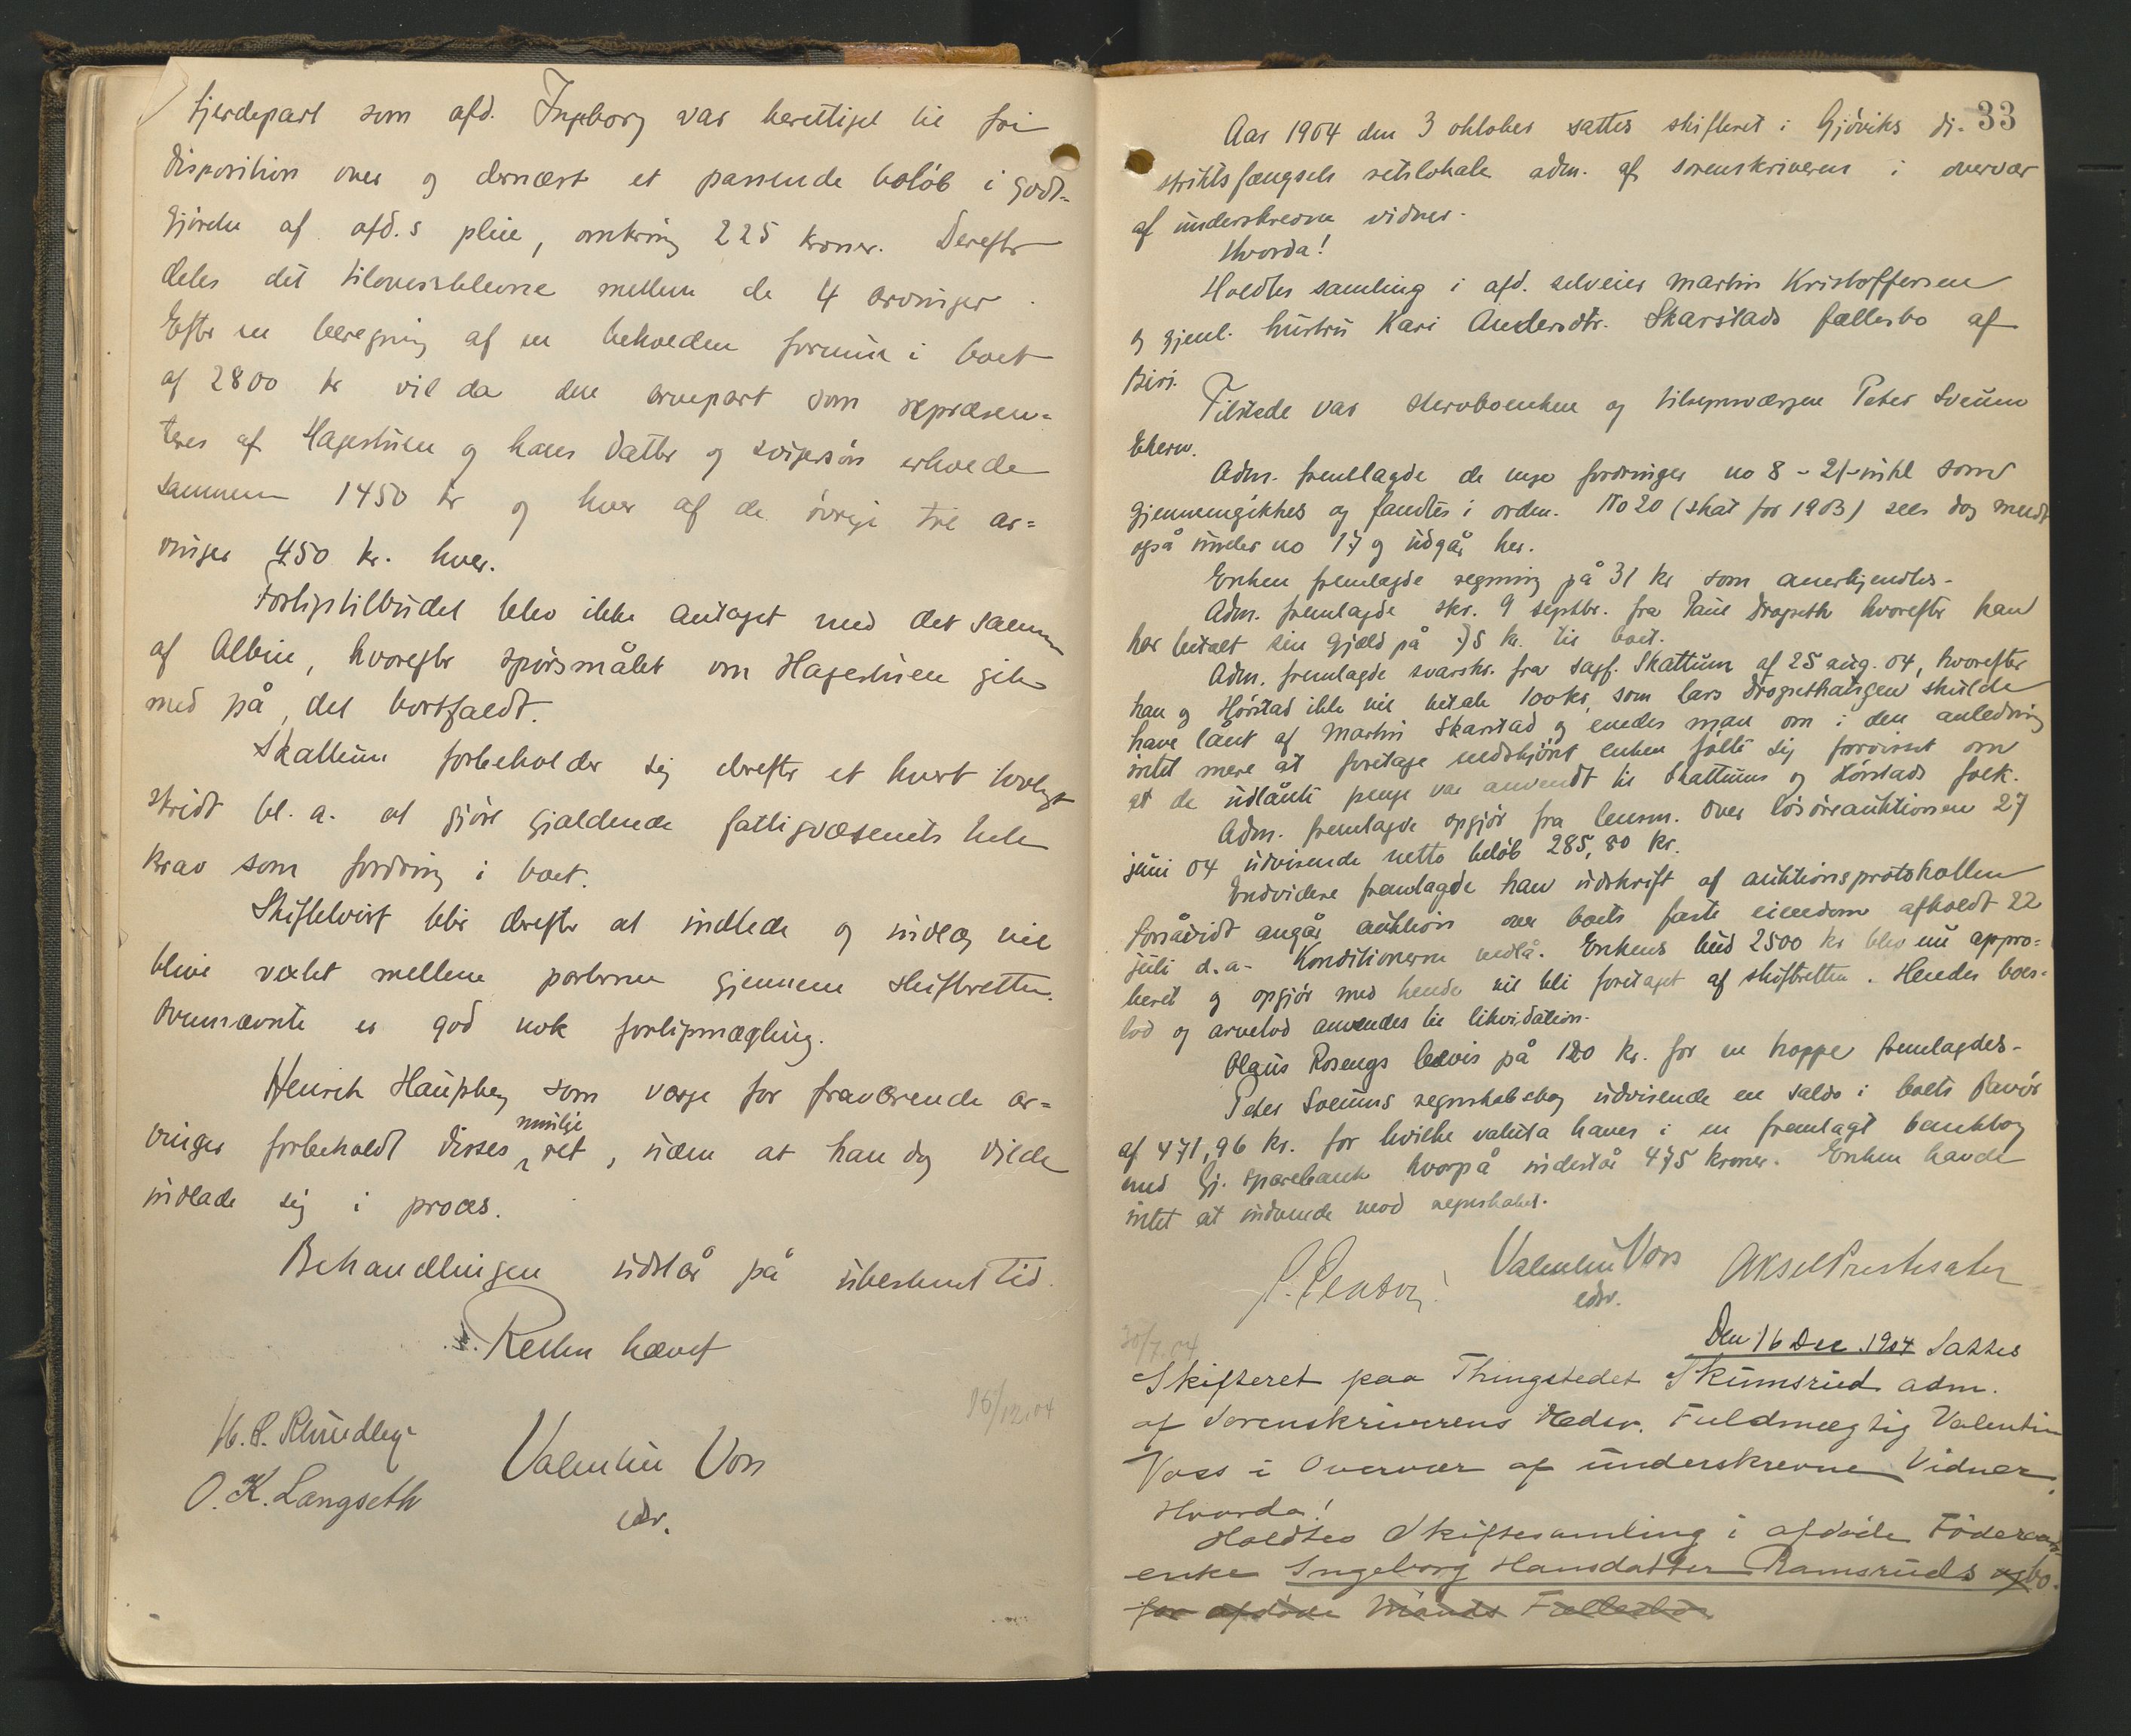 fjerdepart som afd. Ingeborg var berettiget til fri
disposition over og dernæst et passende beløb i godt-
gjørelse af afd.s pleie, omkring 225 kroner. Derefter
deles det tiloversblevne mellem de 4 arvinger.
Efter en beregning af en beholden formue i boet
af 2800 kr vil da den arvepart som repræsen-
teres af Hagestuen og hans datter og svigersøn erholde
sammen 1450 kr og hver af de øvrige tre ar-
vinger 450 kr. hver.
Forligstilbudet blev ikke antaget med det samme
af Albin, hvorefter spørsmålet om Hagestuen gik
med på det bortfaldt.
Skattum forbeholder sig derefter et hvert lovligt
skridt bl. a. at gjøre gjældende fattigvæsenets hele
krav som fordring i boet.
Skiftetvist blir derefter at indlede og indlæg vil
blive vexlet mellem parterne gjennem skifteretten.
Ovennævnte er god nok forligsmægling.
Henrik Haugsberg som verge for fraværende ar-
vinger forbeholdt disses mulige ret, uden at han dog vilde
indlade sig i proces.
Behandlingen udstår på ubestemt tid.
Retten hævet
16/12.04
H. P. Rundberg
Valentin Voss
O. K. Langseth
edsv.
33
Aar 1904 den 3 oktober sattes skifteret i Gjøviks di-
strikts fængsels retslokale adm. af sorenskriveren i overvær
af underskrevne vidner.
Hvorda!
Holdtes samling i afd. selveier Martin Kristoffersen
og gjenl. hustru Kari Andersdtr. Skarstads fællesbo af
Biri.
Tilstede var sterboenken og tilsynsværgen Peter Sveum
Ekern.
Adm. fremlagde de nye fordringer no 8 - 21 inkl som
gjennemgikkes og fandtes i orden. No 20 (skat for 1903) sees dog medt
også under no 17 og udgår her.
Enken fremlagde regning på 31 kr som anerkjendtes.
Adm. fremlagde skr. 9 septbr. fra Paul Dragseth hvorefter han
har betalt sin gjæld på 75 kr. til boet.
Adm. fremlagde svarskr. fra sagf. Skattum af 25 aug. 04, hvorefter
han og Hørstad ikke vil betale 100 kr, som Lars Drogsethhaugen skulde
have lånt af Martin Skarstad og enedes man om i den anledning
intet mere at foretage uedskjønt enken følte sig forvisset om
at de udlånte penge var anvendt til Skattums og Hørstads folk.
Adm. fremlagde opgjør fra lensm. over løsøreauktionen 27
juni 04 udvisende netto beløb 285,80 kr.
Endvidere fremlagde han udskrift af auktionsprotokollen
forsåvidt angår auktion over boets faste eiendom afholdt 22
juli d.a. Konditionerne vedlå. Enkens bud 2500 kr blev nu appro-
beret og opgjør med hende vil bli foretaget af skifteretten. Hendes boes-
lod og arvelod anvendes til likvidation.
Olaus Rosengs bevis på 120 kr. for en hoppe fremlagdes.
Peder Sveums regnskabsbog udvisende en saldo i boets favør
af 471,96 kr. for hvilke valuta haves i en fremlagt bankbog
med Gj. sparebank hvorpå indestår 475 kroner. Enken havde
intet at indvende mod regnskabet.
Valentin Voss
edsv.
Aksel Prestesæter
30/7.04
Den 16 Dec 1904 sattes
Skifteret paa Thingstedet Skumsrud adm.
af Sorenskriverens Edsv. Fuldmægtig Valentin
Voss i Overvær af underskrevne Vidner.
Hvorda!
Holdtes Skiftesamling i afdøde Føderaads-
enke Ingeborg Hansdatter Ramsruds og bo.
før afdøde Mands Fællesbo